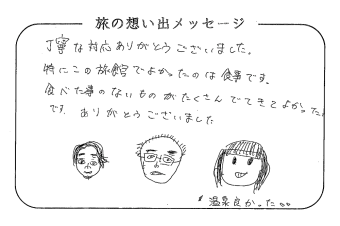 旅の想い出メッセージ
丁寧な対応ありがとうございました。
特にこの旅館でよかったのは食事です。
食べた事のないものがたくさんでてきてよかった
です。ありがとうございました
温泉良かった